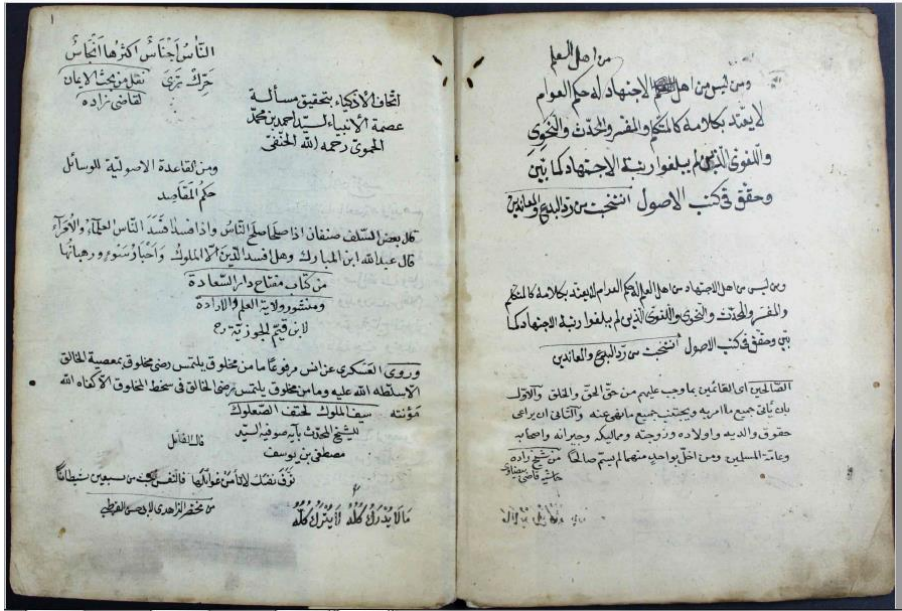 من اهل العلم
ومن ليس من اهل العلم الاجتهاد له حكم العوام
لا يعتد بكلامه كالمتكلم والمفسر والمحدث والنحوي
واللغوي الذين لم يبلغوا رتبة الاجتهاد كما بين
وحقق في كتب الاصول انتخبت من رد البدع والمعاندين
ومن ليس من اهل الاجتهاد من اهل العلم له حكم العوام لا يعتد بكلامه كالمتكلم
والمفسر والمحدث والنحوي واللغوي الذين لم يبلغوا رتبة الاجتهاد كما
بين وحقق في كتب الاصول انتخبت من رد البدع والمعاندين
الصالحين اى القائمين بما وجب عليهم من حق الحق والخلق والاول
بان يأتى جميع ما امر به ويجتنب جميع ما نهى عنه والثانى ان يراعى
حقوق والديه واولاده وزوجته ومماليكه وجيرانه واصحابه
وعامة المسلمين ومن اخل بواحد منهما لم يسم صالحا من شيخ زاده
حاشية قاضى
١
النَّاسُ اَجْنَاسٌ اكثرُهَا اَنْجَاسٌ
حَرِّكْ تَرَى نقل من بحث الايمان
لقاضى زاده
اتحاف الاذكياء بتحقيق مسألة
عصمة الانبياء لسيد احمد بن محمد
الحموى رحمه الله الحنفى
ومن القاعدة الاصولية للوسائل
حكم المقاصد
قال بعض السلف صنفان اذا صلحا صلح الناسُ واذا فسدا فسَدَ الناس العلماءُ والامراء
قال عبد الله ابن المبارك وهل افسد الدين الا الملوك وَاَحْبَارُ سَوءٍ ورهبانُها
من كتاب مفتاح دار السعادة
ومنشور ولاية العلم والارادة
لابن قيم الجوزية رح
وروى العسكرى عن انس مرفوعًا ما من مخلوق يلتمس رضى مخلوق بمعصية الخالق
الا سلطه الله عليه وما من مخلوق يلتمس رضى الخالق فى سخط المخلوق الا كفاه الله
مؤنته سيف الملوك لحتف الصعلوك
للشيخ المحدث بآية صوفيه السيد
مصطفى بن يوسف
قال القائل
تَوَقَّ نفسَك لا تأمن غوائلَها فالنفس اخبث من سبعين شيطانا
من مختصر الزاهدى
مَا لَا يُدْرَكُ كُلُّهُ لَا يُتْرَكُ كُلُّهُ